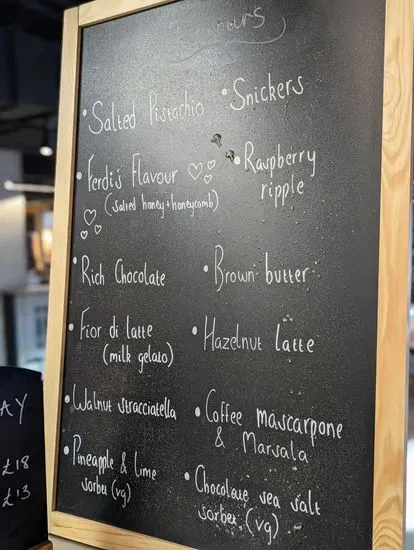 Flavours
• Salted Pistachio
• Snickers
• Ferdi's Flavour
(salted honey + honeycomb)
• Raspberry
ripple
• Rich Chocolate
• Brown butter
• Fior di latte
(milk gelato)
• Hazelnut latte
• Walnut stracciatella
• Coffee mascarpone
& Marsala
• Pineapple & Lime
sorbet (vg)
• Chocolate sea salt
sorbet (vg)
AY
£18
£13